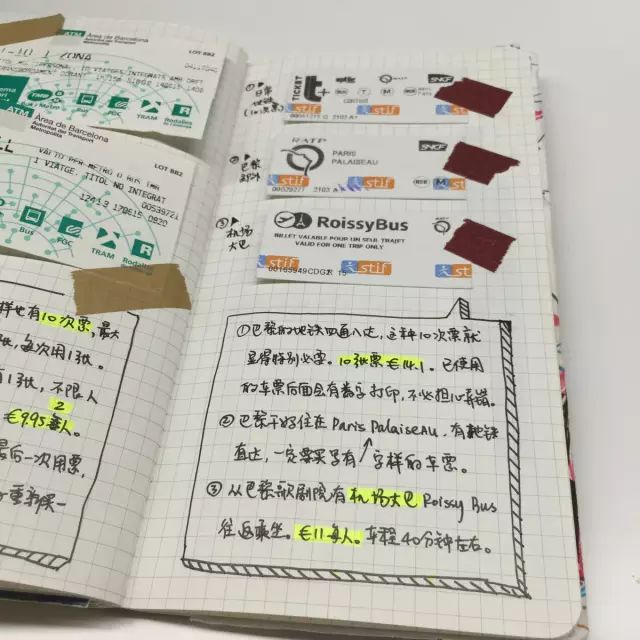 ATM Àrea de Barcelona
Autoritat del Transport
Metropolità
LOT BB2
ATM
TMB
Bus
FGC
TRAM
Rodalies
de Catalunya
Àrea de Barcelona
Autoritat del Transport
Metropolità
LOT BB2
1 VIATGE. TITOL NO INTEGRAT
0053972
12413 170615 0920
Bus
FGC
TRAM
Rodalies
de Catalunya
样也有10次票,最大
每次用1张。
有1张,不限人
2
€9.95每人。
最后一次用票,
①▶
日常
地铁
TICKET
t+
RATP
SNCF
stif
②▶
巴黎
郊外
RATP
PARIS
PALAISEAU
SNCF
stif
2103 A
RER
M
st
③▶
机场
大巴
RoissyBus
BILLET VALABLE POUR UN SEUL TRAJET
VALID FOR ONE TRIP ONLY
00165949CDG2R 15
stif
st
①巴黎的地铁四通八达,这种10次票就
显得特别必要。10张票€14.1。已使用
的车票后面会有数字打印,不必担心弄错。
②巴黎于好住在Paris Palaiseau,有地铁
直达,一定要买写有↗字样的车票。
③从巴黎歌剧院有机场大巴Roissy Bus
往返乘坐。€11每人。车程40分钟左右。